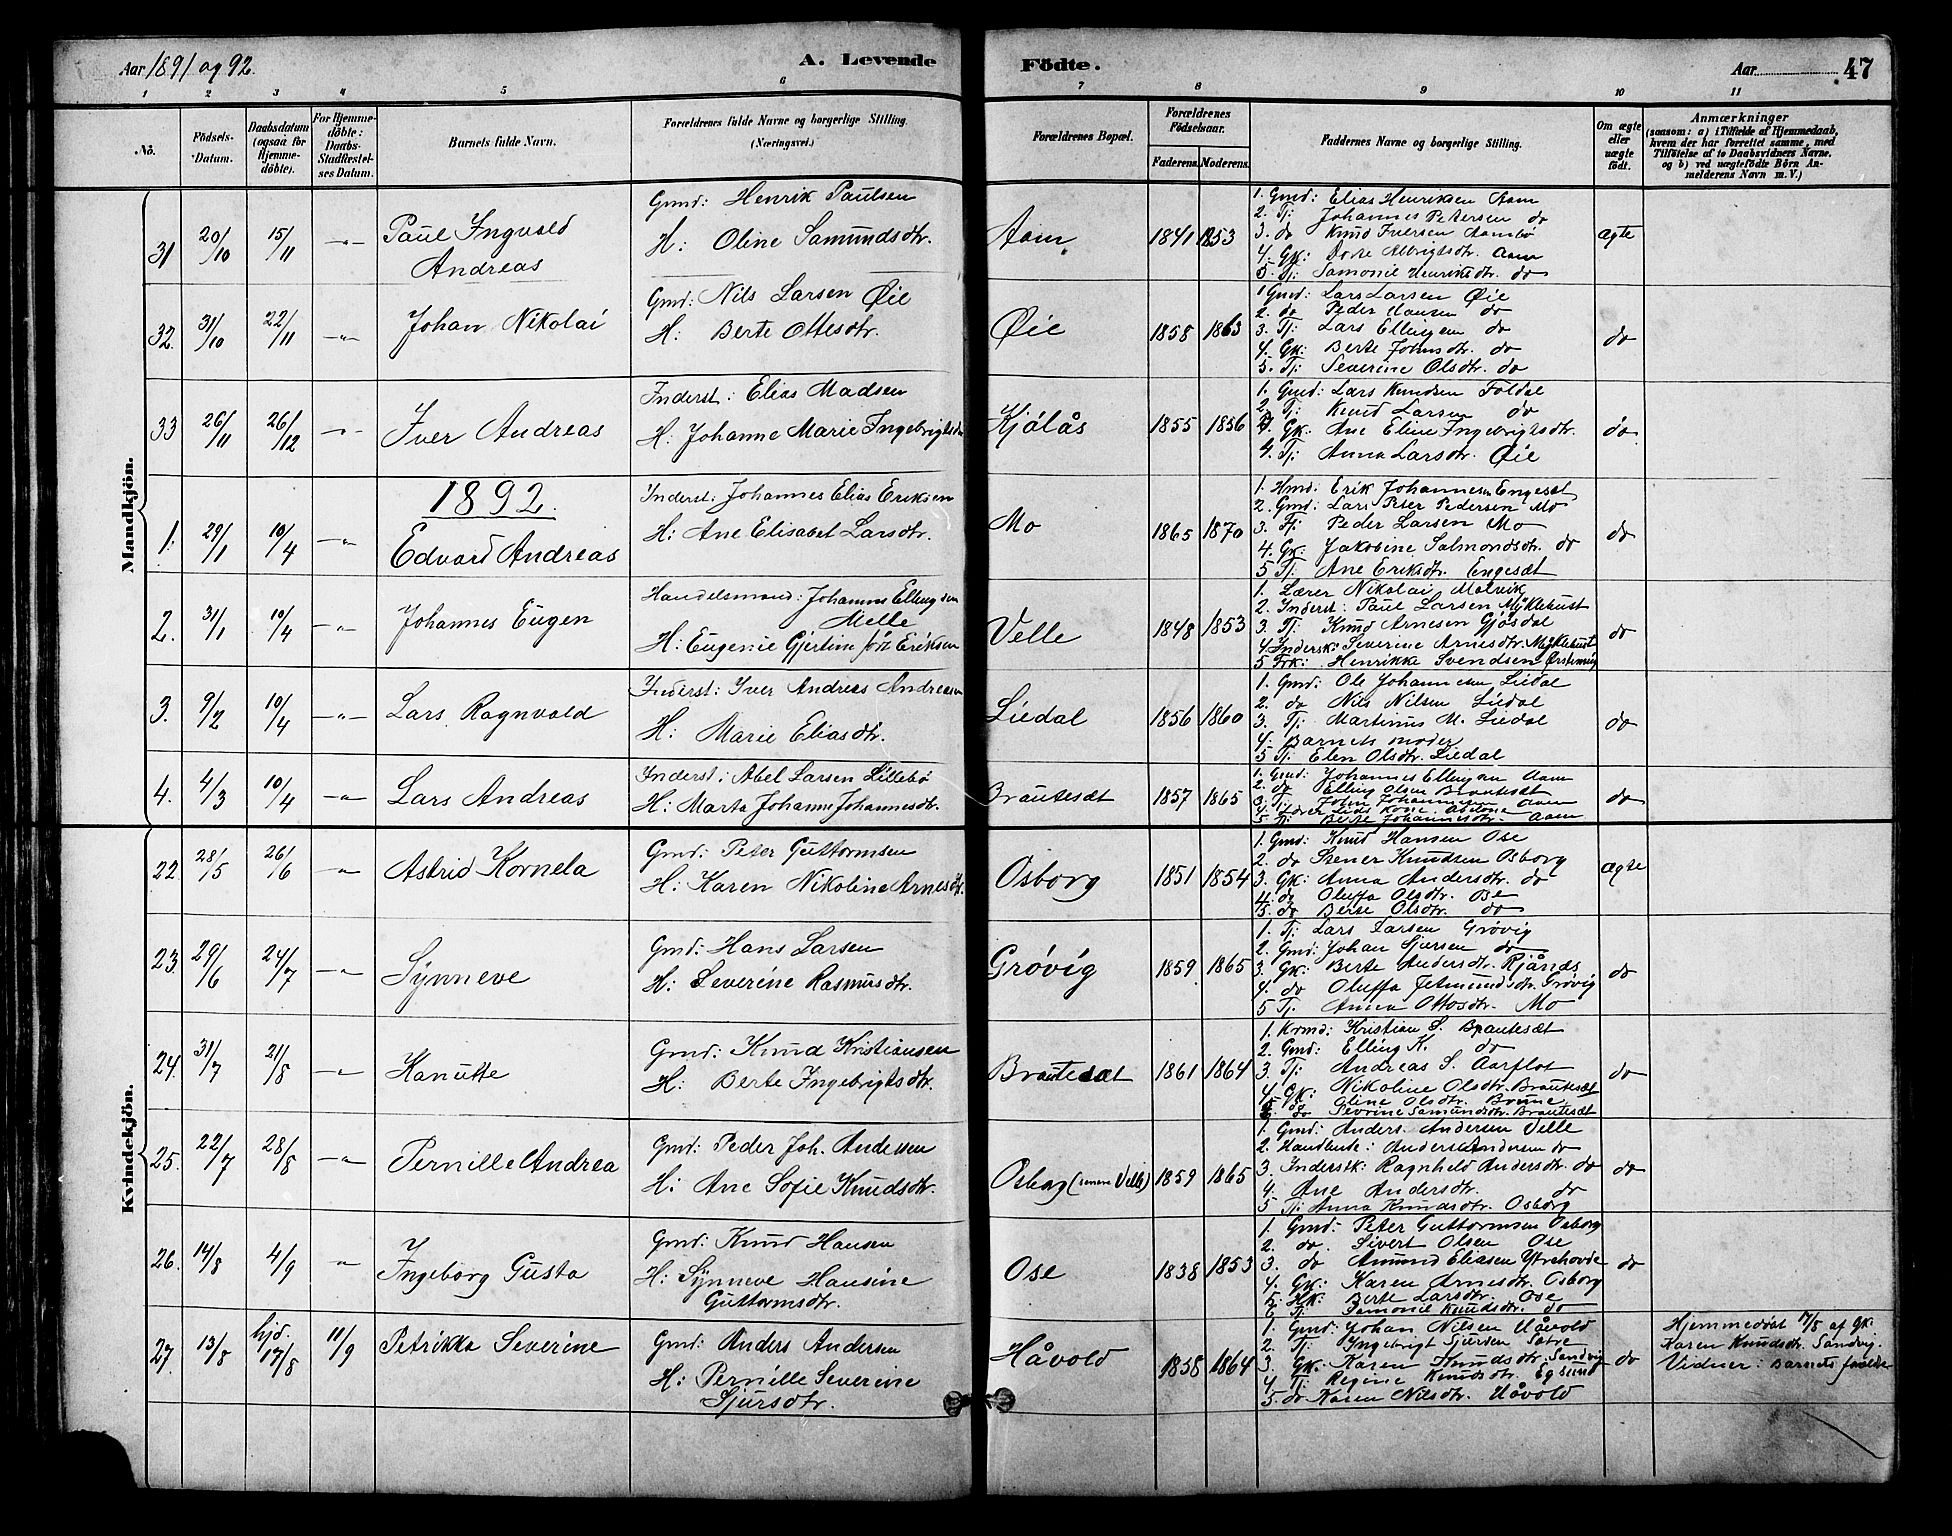 Aar 1891 og 92.
A. Levende Födte.
Aar 47
1 2 3 4 5 6 7 8 9 10 11
No.
Födsels-Datum.
Daabsdatum (ogsaa for Hjemmedöbte).
For Hjemmedöbte: Daabs-Stadfæstelses Datum.
Barnets fulde Navn.
Forældrenes fulde Navne og borgerlige Stilling. (Næringsvei.)
Forældrenes Bopæl.
Forældrenes Födselsaar.
Faderens. Moderens.
Faddernes Navne og borgerlige Stilling.
Om ægte eller uægte födt.
Anmærkninger
(saasom: a) i Tilfælde af Hjemmedaab, hvem der har forrettet samme, med Tilföielse af to Daabsvidners Navne, og b) ved uægtefödte Börn Anmelderens Navn m. V.)
Mandkjön.
31 20/10 15/11 -"- Paul Ingvald Andreas
Gmd: Henrik Paulsen
H: Oline Samundsdtr.
Aam 1841 1853
1. Gmd: Elias Henriksen Aam
2. Tj: Johannes Petersen do
3. do Knud Iversen Aambø
4. Gk: Dorte Albrigtsdtr. Aam
5. Tj: Samonil Henriksdtr. do
ægte
32. 31/10 22/11 -"- Johan Nikolai
Gmd: Nils Larsen Øie
H: Berte Ottesdtr.
Øie 1858 1863
1 Gmd: Lars Larsen Øie
2. do Peder Hansen do
3. Tj: Lars Ellingsen do
4. Gk: Berte Johnsdtr. do
5. Tj: Severine Olsdtr. do
do
33 26/11 26/12 -"- Iver Andreas
Inderst: Elias Madsen
H: Johanne Marie Ingebrigtsdtr
Kjølås 1855 1856
1. Gmd: Lars Knudsen Foldal
2. Tj: Knud Larsen do
3. Gk: Ane Eline Ingebrigtsdtr.
4. Tj: Anna Larsdtr. Øie
do
1892.
1. 29/1 10/4 -"- Edvard Andreas
Inderst: Johannes Elias Eriksen
H: Ane Elisabet Larsdtr.
Mo 1865 1870
1. Hmd: Erik Johannesen Engeset
2. Gmd: Lars Peter Pedersen Mo
3. Tj: Peder Larsen Mo
4. Gk: Jakobine Salmondsdtr. do
5 Tj: Ane Eriksdtr. Engesæt
do
2. 31/1 10/4 -"- Johannes Eugen
Handelsmand: Johannes Ellingsen Melle
H: Eugenie Gjertine før Eriksen
Velle 1848 1853
1. Lærer Nikolai Molvik
2. Inderst: Paul Larsen Myklebust
3. Tj: Knud Arnesen Gjøsdal
4. Indersk: Severine Arnesdtr. Myklebust
5 Frk: Henrikke Svendsen Ørstenvig
do
3. 9/2 10/4 -"- Lars Ragnvald
Inderst: Iver Andreas Andreasen
H: Marie Eliasdtr.
Liedal 1856 1860
1. Gmd: Ole Johannesen Liedal
2. do Nils Nilsen Liedal
3. Tj: Martinus M. Liedal
4. Barnets moder
5 Tj: Elen Olsdtr. Liedal
do
4. 4/3 10/4 -"- Lars Andreas
Inderst: Abel Larsen Lillebø
H: Marta Johanne Johannesdtr.
Brautesæt 1857 1865
1. Gmd: Johannes Ellingsen Aam
2. do Elling Olsen Brautesæt
3. Tj: John Johannesen Aam
5. Tj: Berte Johannesdtr. Aam
do
Kvindekjön.
22 28/5 26/6 -"- Astrid Kornela
Gmd: Peter Guttormsen
H: Karen Nikoline Arnesdtr.
Osborg 1851 1854
1. Gmd: Knud Hansen Ose
2. do Stener Knudsen Osborg
3. Gk: Anna Andersdtr. do
4. do Oluffa Olsdtr. Bø
5. do Berte Olsdtr. do
ægte
23. 29/6 24/7 -"- Synneve
Gmd: Hans Larsen
H: Severine Rasmusdtr.
Grøvig 1859 1865
1. Tj: Lars Larsen Grøvig
2. Gmd: Johan Sjursen do
3. Gk: Berte Andersdtr. Rjånes
4. do Oluffa Jetmundsdtr. Grøvig
5 Tj: Anna Ottosdtr. Mo
do
24. 31/7 21/8 -"- Kanutte
Gmd: Knud Kristiansen
H: Berte Ingebrigtsdtr.
Brautesæt 1861 1864
1. Krmd: Kristian S. Brautesæt
2. Gmd: Elling K. do
3. Tj: Andreas S. Aarflot
4. Gk: Nikoline Olsdtr. Brautesæt
5. do Oline Olsdtr. Brune
6. do Sevrine Samundsdtr. Brautesæt
do
25. 22/7 28/8 -"- Pernille Andrea
Gmd: Peder Joh. Andersen
H: Ane Sofie Knudsdtr.
Osborg (senere Velle) 1859 1865
1. Gmd: Anders Andersen Velle
2. Handlende: Anders Andersen do
3. Inderstk: Ragnhild Andersdtr. do
4. Ane Andersdtr. do
5 Tj: Anna Knudsdtr. Osborg
do
26. 14/8 4/9 " Ingeborg Gusta
Gmd: Knud Hansen
H: Synneve Hansine Guttormsdtr.
Ose 1838 1853
1. Gmd: Peter Guttormsen Osborg
2. do. Sivert Olsen Ose
3. do Amund Eliasen Ytrehovde
4. Gk: Karen Arnesdtr. Osborg
5. Hk: Berte Larsdtr. Ose
6 Tj: Samonil Knudsdtr. do
do
27. 13/8 hjd. 17/8 11/9 Petrikka Severine
Gmd: Anders Andersen
H: Pernille Severine Sjursdtr.
Håvold 1858 1864
1. Gmd: Johan Nilsen Håvold
2. Tj: Ingebrigt Sjursen Sætre
3. Gk: Karen Knudsdtr. Sandvig
4. Tj: Regine Knudsdtr. Egsund
5. do Karen Nilsdtr. Håvold
do
Hjemmedøbt 17/8 af Gk.
Karen Knudsdtr. Sandvig.
Vidner: Barnets forældre